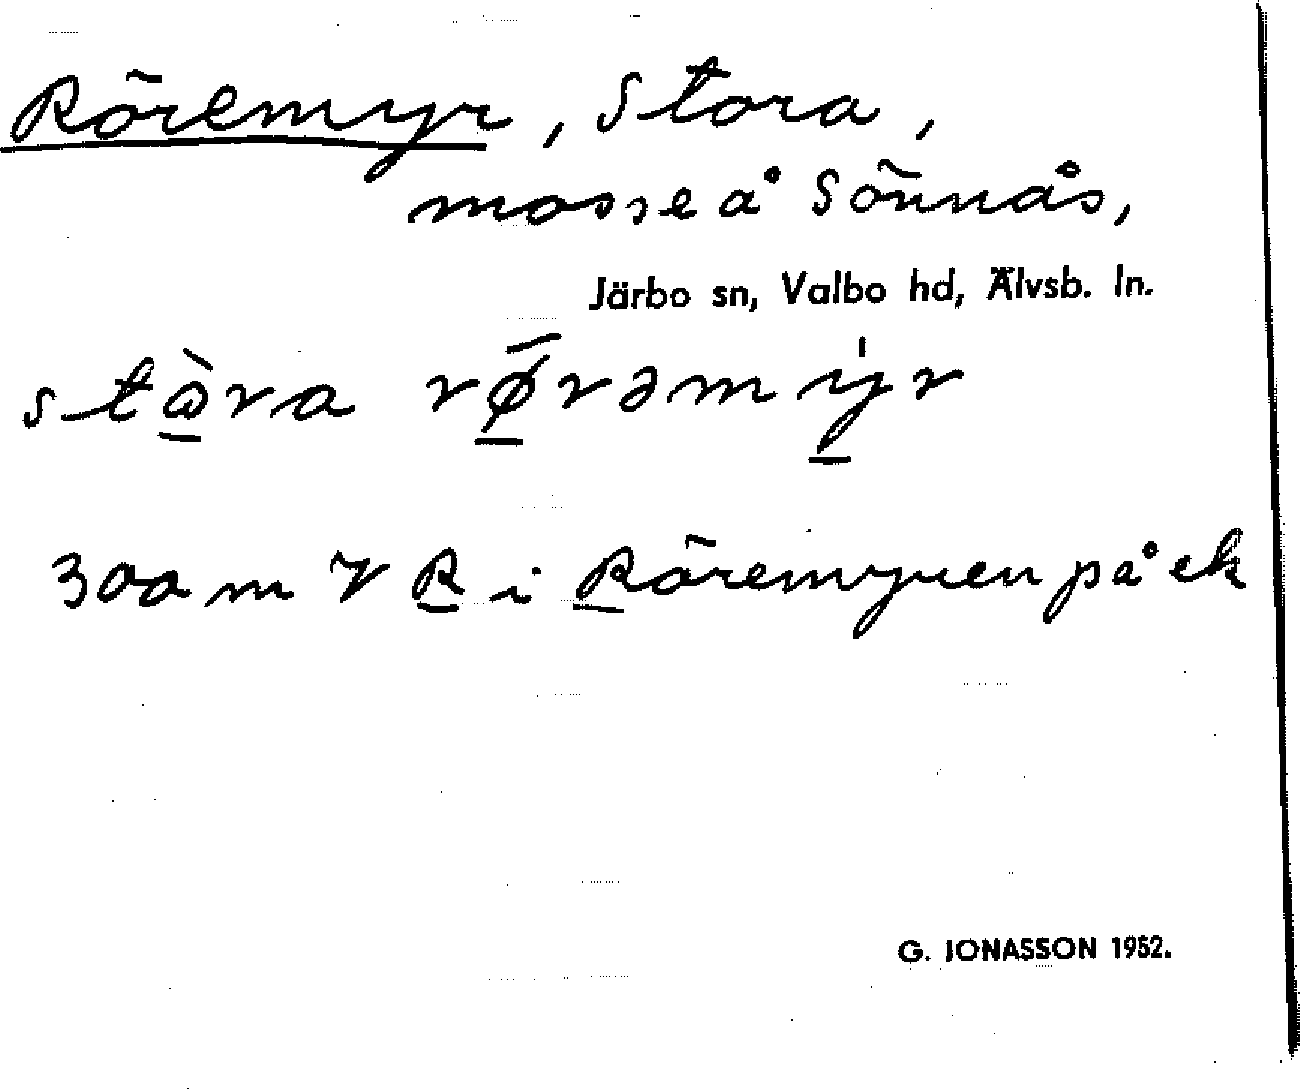 Röremyr, Stora,
mosse å Sönnås,
Järbo sn, Valbo hd, Älvsb. ln.
stɷ̀ra rø̄rəmẏr
300 m V R i Röremyren på ek
G. JONASSON 1952.